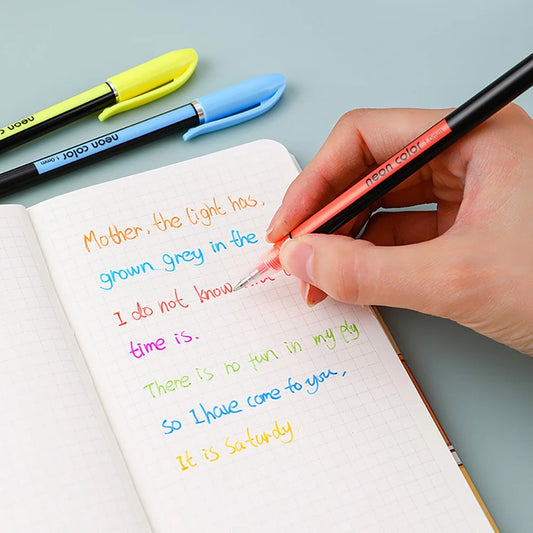 neon color
neon color 1.0mm
neon color
Mother, the light has,
grown grey in the
I do not know
time is.
There is no fun in my
so I have come to you,
It is Saturdy